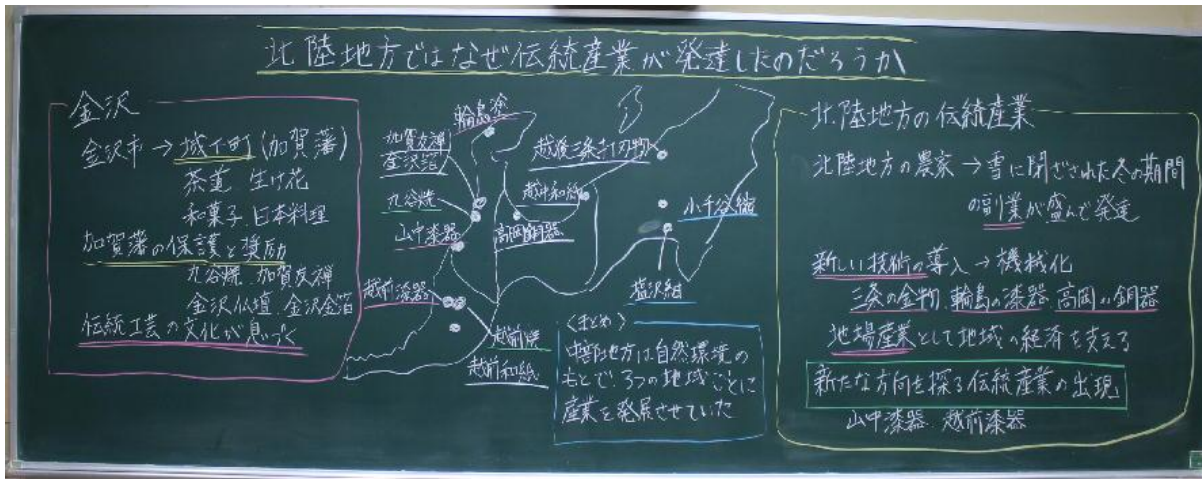 北陸地方ではなぜ伝統産業が発達したのだろうか
金沢
金沢市→城下町(加賀藩)
茶道 生け花
和菓子 日本料理
加賀藩の保護と奨励
九谷焼 加賀友禅
金沢仏壇 金沢金箔
伝統工芸の文化が息づく
輪島塗
加賀友禅
金沢箔
九谷焼
山中漆器
越前漆器
越前焼
越前和紙
高岡銅器
越中和紙
越後三条打刃物
小千谷縮
塩沢紬
〈まとめ〉
中部地方は自然環境の
もとで、3つの地域ごとに
産業を発展させていた
北陸地方の伝統産業
北陸地方の農家→雪に閉ざされた冬の期間
の副業が盛んで発達
新しい技術の導入→機械化
三条の金物 輪島の漆器 高岡の銅器
地場産業として地域の経済を支える
新たな方向を探る伝統産業の出現
山中漆器 越前漆器